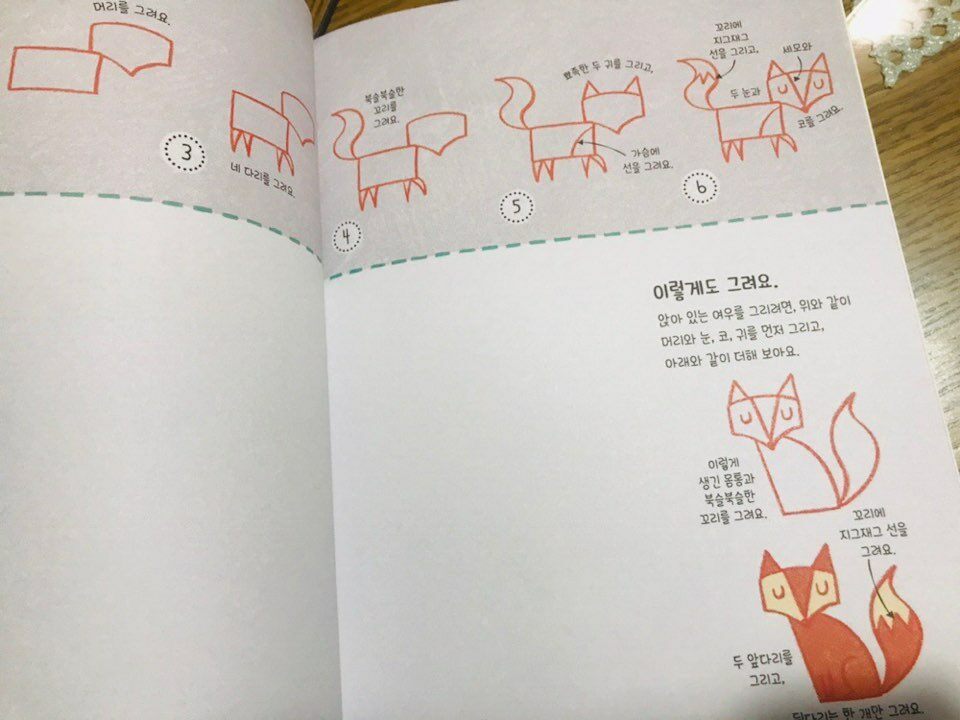 머리를 그려요.
3
네 다리를 그려요.
4
북슬북슬한
꼬리를
그려요.
5
뾰족한 두 귀를 그리고,
가슴에
선을 그려요.
6
꼬리에
지그재그
선을 그리고,
두 눈과
세모와
코를 그려요.
이렇게도 그려요.
앉아 있는 여우를 그리려면, 위와 같이
머리와 눈, 코, 귀를 먼저 그리고,
아래와 같이 더해 보아요.
이렇게
생긴 몸통과
북슬북슬한
꼬리를 그려요.
꼬리에
지그재그 선을
그려요.
두 앞다리를
그리고,
뒷다리는 한 개만 그려요.